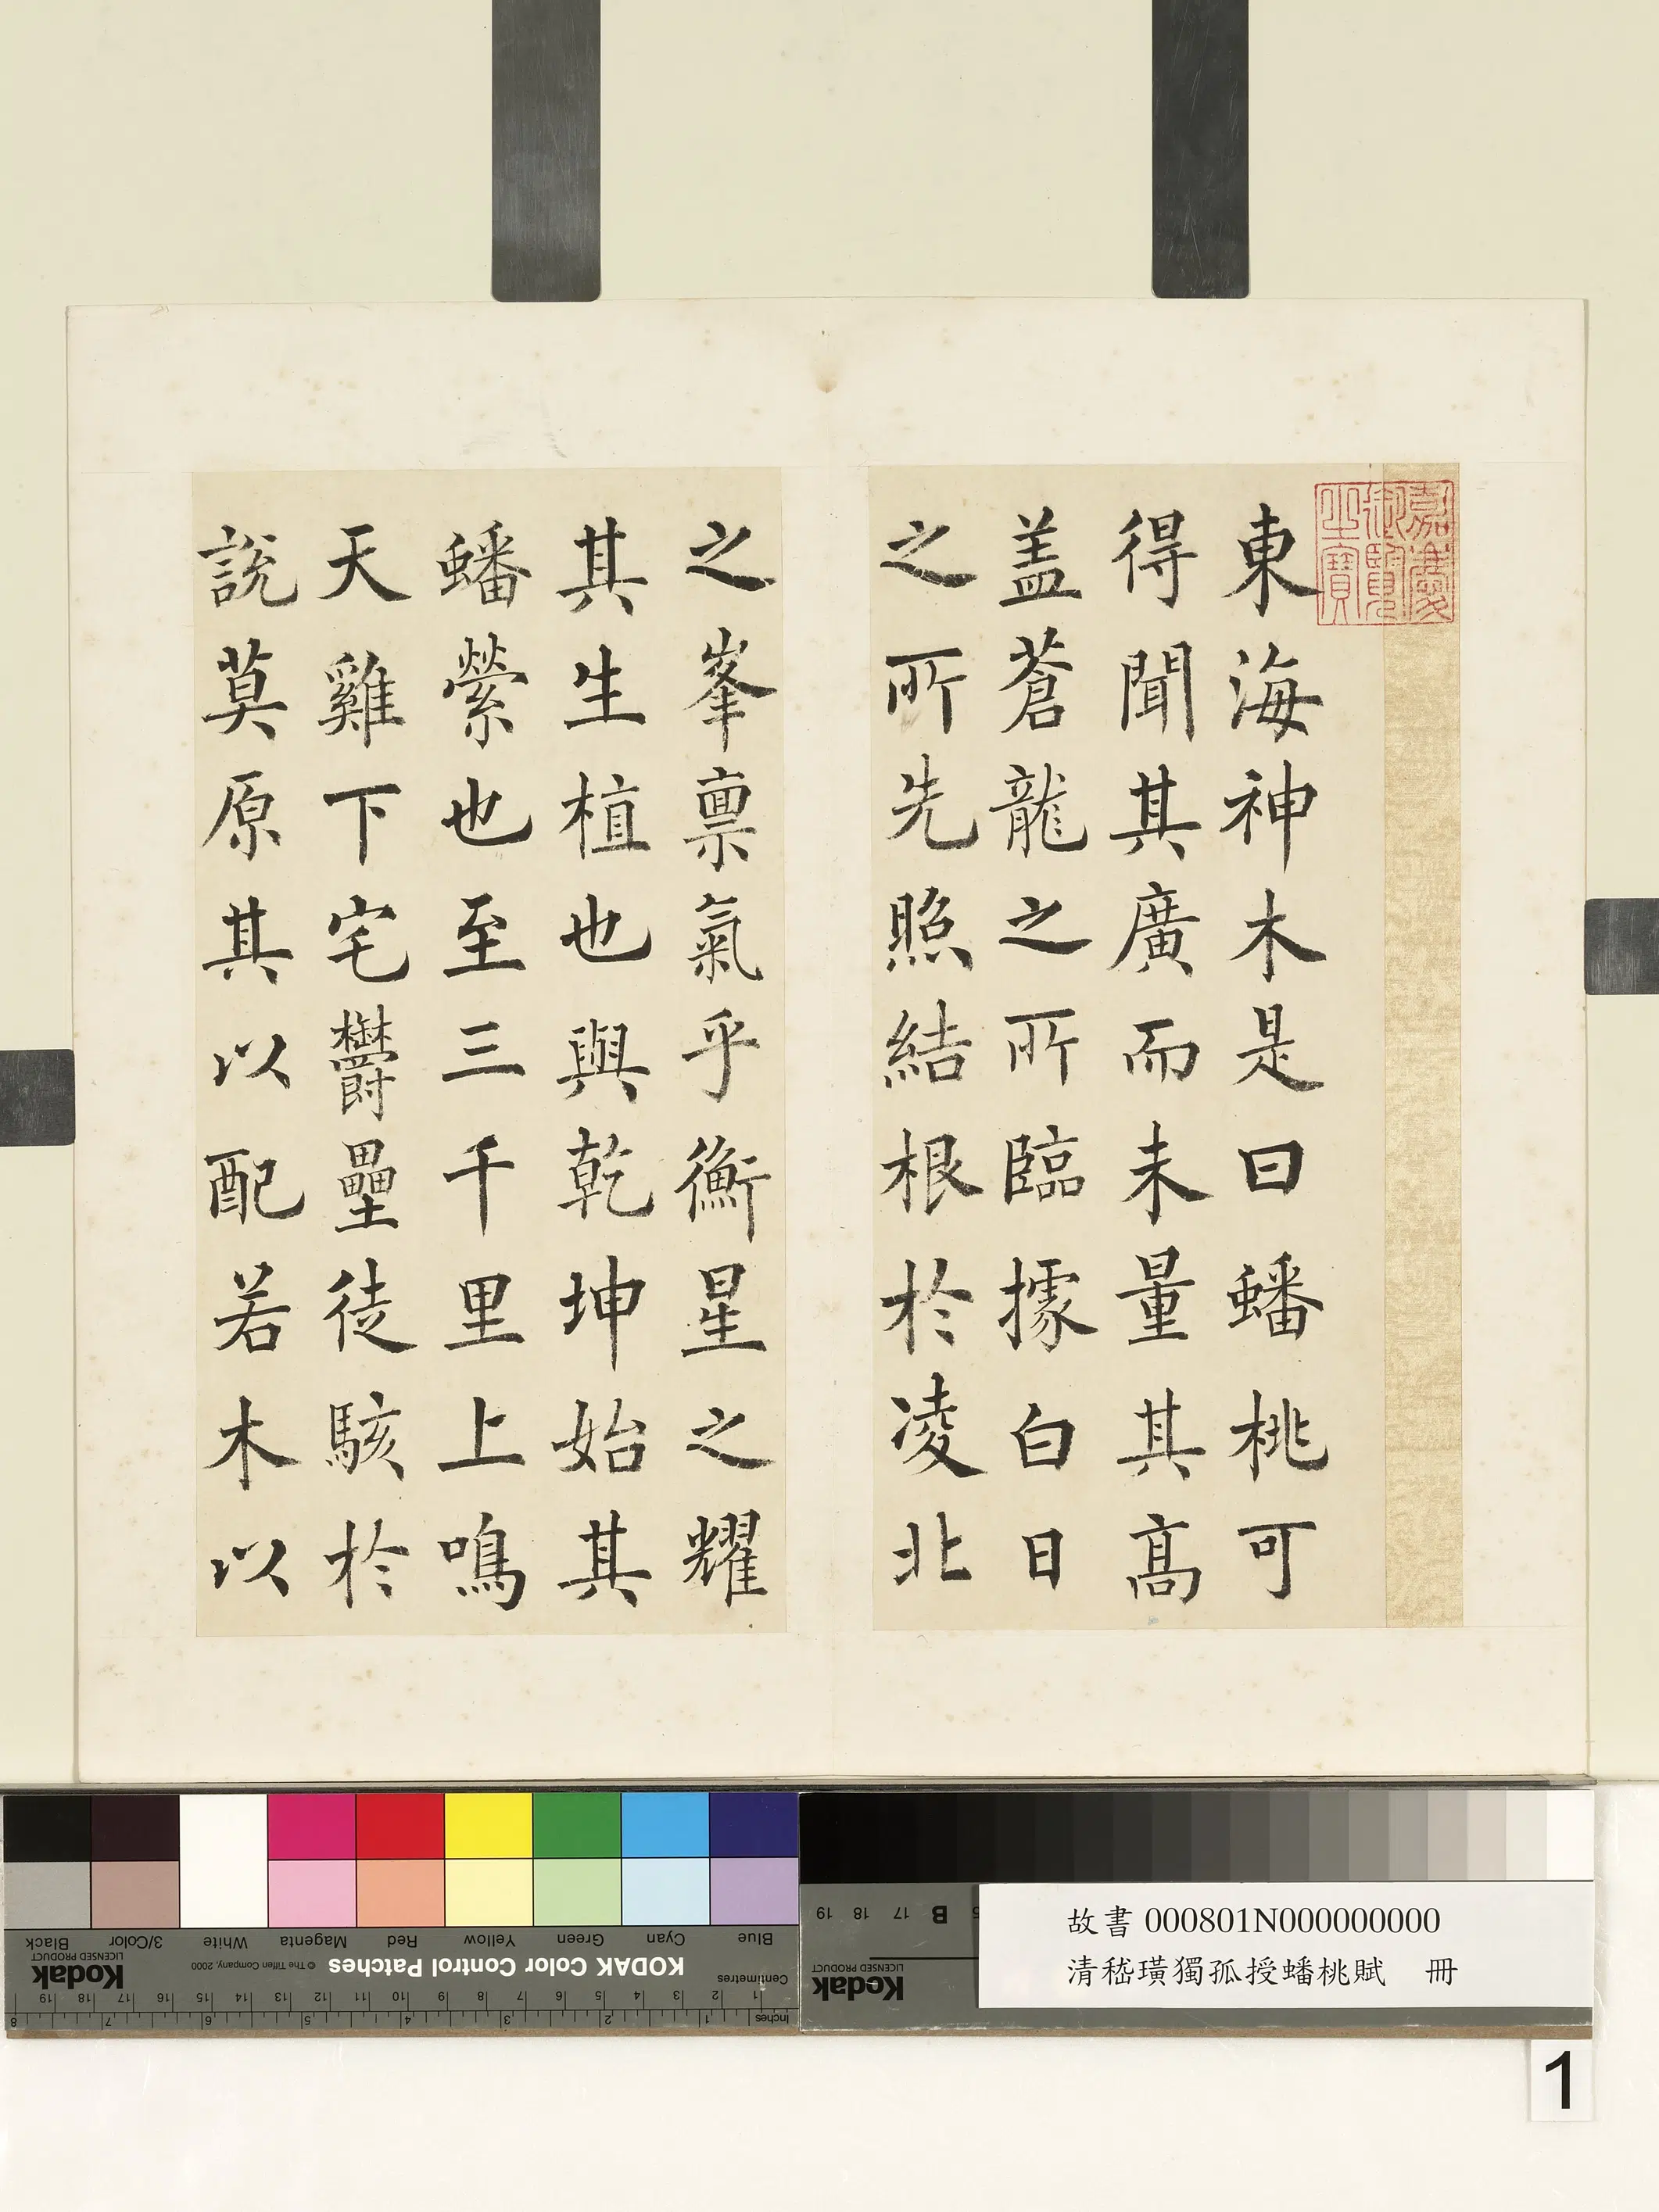 嘉慶
御覽
之寶
東海神木是曰蟠桃可
得聞其廣而未量其高
盖蒼龍之所臨據白日
之所先照結根於凌北
之峯禀氣乎衡星之耀
其生植也與乾坤始其
蟠縈也至三千里上鳴
天雞下宅欝壘徒駭於
說莫原其以配若木以
Blue
Cyan
Green
Yellow
Red
Magenta
White
3/Color
Black
KODAK Color Control Patches
© The Tiffen Company, 2000
Kodak
LICENSED PRODUCT
Centimetres
1 2 3 4 5 6 7 8 9 10 11 12 13 14 15 16 17 18 19
Inches
1 2 3 4 5 6 7 8
B 17 18 19
Kodak
LICENSED PRODUCT
故書000801N000000000
清嵇璜獨孤授蟠桃賦　冊
1